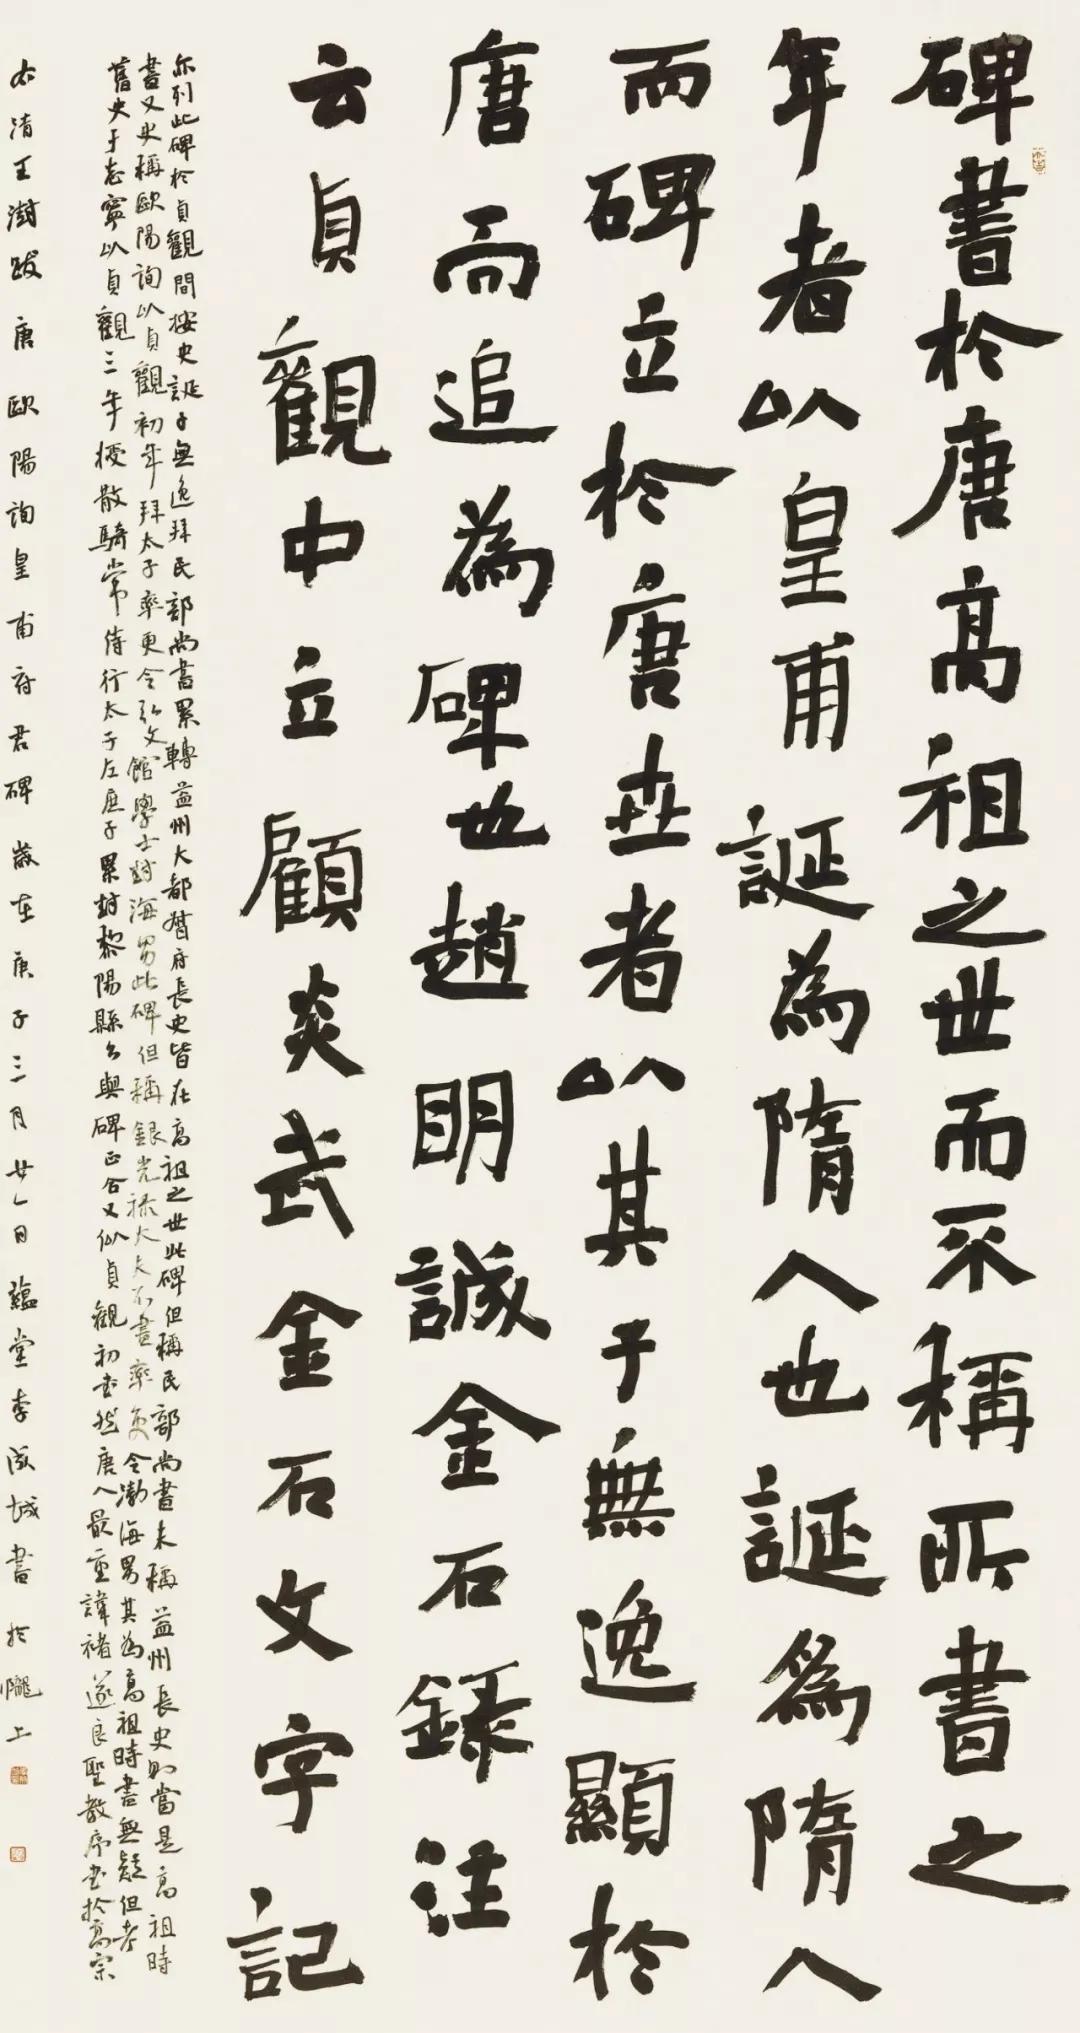 碑書於唐高祖之世而不稱所書之
年者以皇甫誕為隋人也誕為隋人
而碑立於唐世者以其子無逸顯於
唐而追為碑也趙明誠金石錄注
云貞觀中立顧炎武金石文字記
亦列此碑於貞觀間按史誕子無逸拜民部尚書累轉益州大都督府長史皆在高祖之世此碑但稱民部尚書未稱益州長史則當是高祖時
書又史稱歐陽詢以貞觀初年拜太子率更令弘文館學士封海男此碑但稱銀光祿大夫不書率更令渤海男其為高祖時書無疑但考
舊史于志寧以貞觀三年授散騎常侍行太子左庶子累封黎陽縣公與碑正合又似貞觀初書然唐人最重諱褚遂良聖教序書於高宗
右清王澍跋唐歐陽詢皇甫府君碑歲在庚子三月廿日蘊堂李成城書於隴上